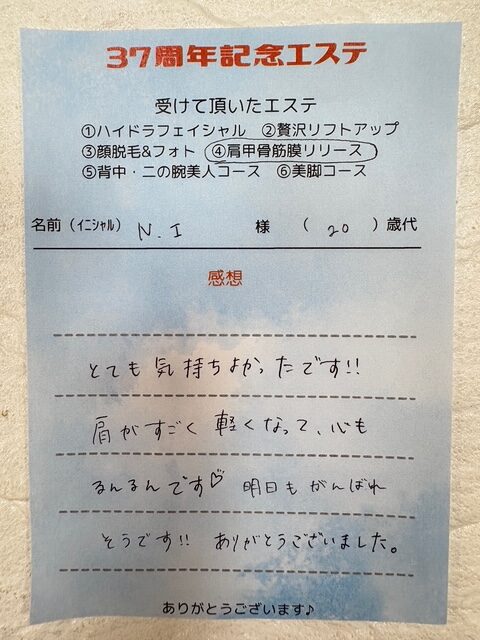 37周年記念エステ
受けて頂いたエステ
①ハイドラフェイシャル ②贅沢リフトアップ
③顔脱毛&フォト ④肩甲骨筋膜リリース
⑤背中・二の腕美人コース ⑥美脚コース
名前(イニシャル) N.I 様 (20)歳代
感想
とても気持ちよかったです!!
肩がすごく軽くなって、心も
るんるんです♡ 明日もがんばれ
そうです!! ありがとうございました。
ありがとうございます♪